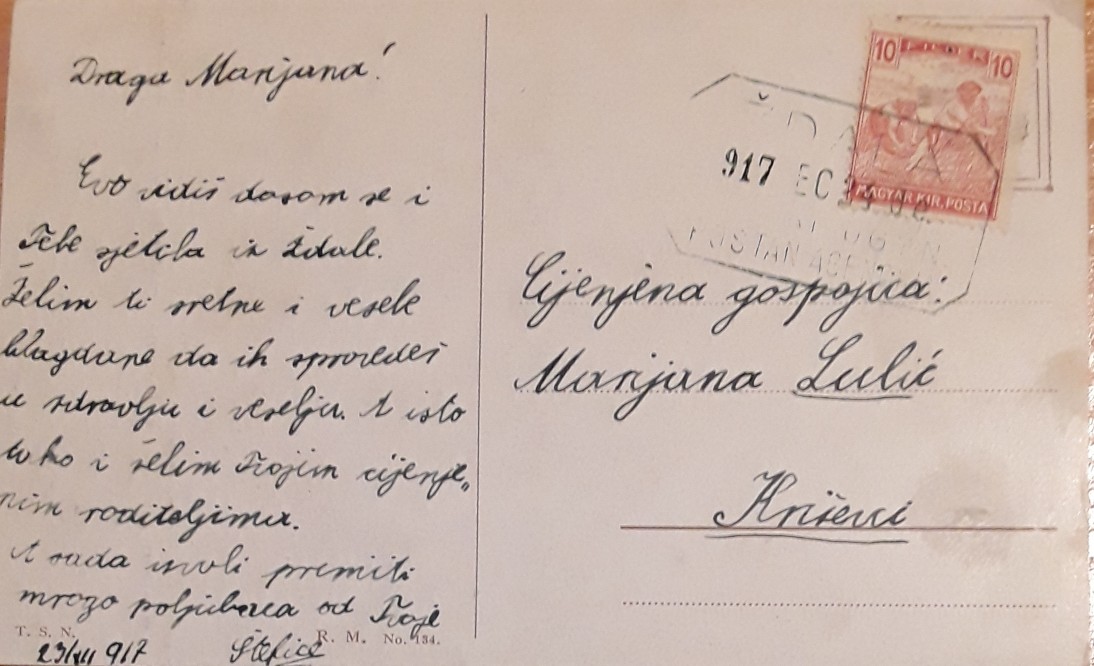 Draga Marijana!
Evo vidiš dasam se i
Tebe sjetila iz Ždale.
Želim ti sretne i vesele
blagdane da ih sprovedeš
u zdravlju i veselju. A isto
tako i želim Tvojim cijenje„
nim roditeljima.
A sada izvoli premiti
mnogo poljubaca od Tvoje
Štefice
23/XII 917
T. S. N.
R. M. No. 134.
10 FILLÉR 10
MAGYAR KIR. POSTA
ŽDALA
917 DEC
Cijenjena gospojica:
Marijana Lulić
Križevci